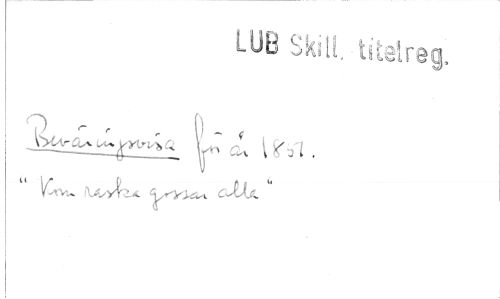 LUB Skill. titelreg.
Beväringsvisa för år 1851.
"Kom raska gossar alla"